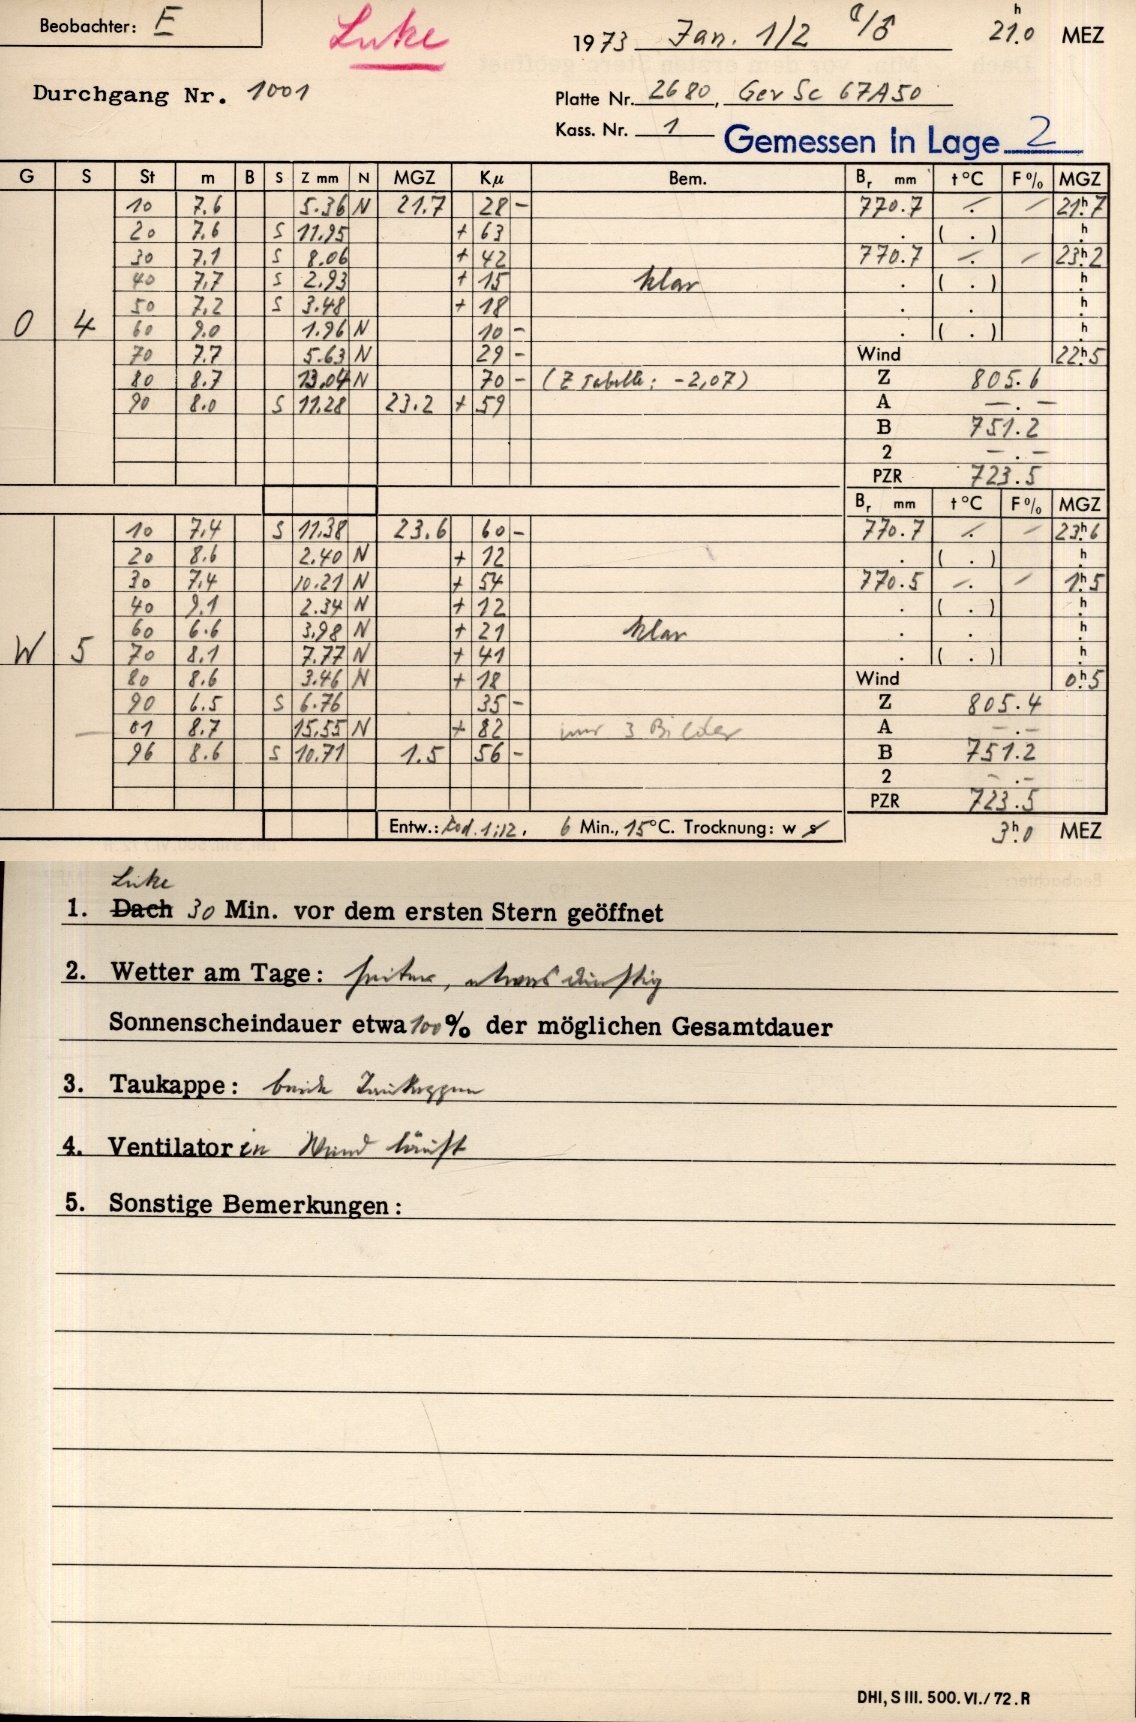 Beobachter: E
Luke
1973 Jan. 1/2 ☾/♂ 21h.0 MEZ
Durchgang Nr. 1001
Platte Nr. 2680, Gev Sc 67A50
Kass. Nr. 1 Gemessen in Lage 2
G S St m B S Z mm N MGZ Kμ Bem. Br mm t°C F% MGZ
10 7.6 5.36 N 21.7 28 - 770.7 -.- - 21h.7
20 7.6 S 11.95 + 63 . ( . ) h.
30 7.1 S 8.06 + 42 770.7 -.- - 23h.2
40 7.7 S 2.93 + 15 klar . ( . ) h.
50 7.2 S 3.48 + 18 . . h.
O 4 60 9.0 1.96 N 10 - . ( . ) h.
70 7.7 5.63 N 29 - Wind 22h.5
80 8.7 13.04 N 70 - (Z Tabelle: -2,07) Z 805.6
90 8.0 S 11.28 23.2 + 59 A -.-
B 751.2
2 -.-
PZR 723.5
Br mm t°C F% MGZ
10 7.4 S 11.38 23.6 60 - 770.7 -.- - 23h.6
20 8.6 2.40 N + 12 . ( . ) h.
30 7.4 10.21 N + 54 770.5 -.- - 1h.5
40 9.1 2.34 N + 12 . ( . ) h.
60 6.6 3.98 N + 21 klar . . h.
W 5 70 8.1 7.77 N + 41 . ( . ) h.
80 8.6 3.46 N + 18 Wind 0h.5
90 6.5 S 6.76 35 - Z 805.4
- 01 8.7 15.55 N + 82 nur 3 Bilder A -.-
96 8.6 S 10.71 1.5 56 - B 751.2
2 -.-
PZR 723.5
Entw.: Rod. 1:12. 6 Min., 15°C. Trocknung: w s 3h.0 MEZ
Luke
1. Dach 30 Min. vor dem ersten Stern geöffnet
2. Wetter am Tage: heiter, etwas dunstig
Sonnenscheindauer etwa 100% der möglichen Gesamtdauer
3. Taukappe: beide Taukappen
4. Ventilator in Wind läuft
5. Sonstige Bemerkungen:
DHI, S III. 500. VI./72. R